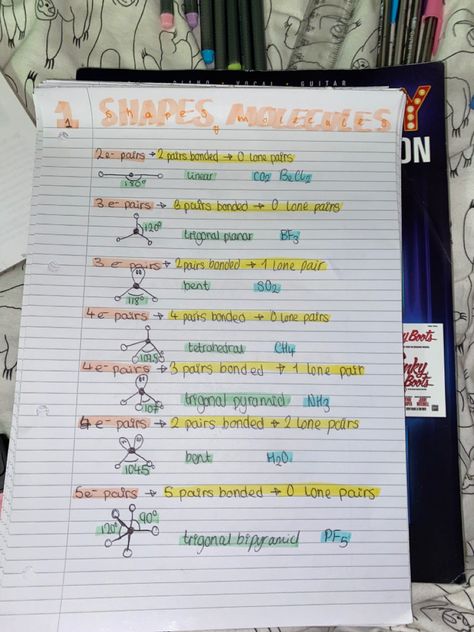 PIANO · VOCAL · GUITAR
1 SHAPES of MOLECULES
2e- pairs → 2 pairs bonded → 0 lone pairs
180° linear CO2 BeCl2
3 e- pairs → 3 pairs bonded → 0 lone pairs
120° trigonal planar BF3
3 e- pairs → 2 pairs bonded → 1 lone pair
118° bent SO2
4 e- pairs → 4 pairs bonded → 0 lone pairs
109.5 tetrahedral CH4
4e- pairs → 3 pairs bonded → 1 lone pair
107° trigonal pyramid NH3
4 e- pairs → 2 pairs bonded → 2 lone pairs
104.5 bent H2O
5e- pairs → 5 pairs bonded → 0 lone pairs
120° 90° trigonal bipyramid PF5
Boots